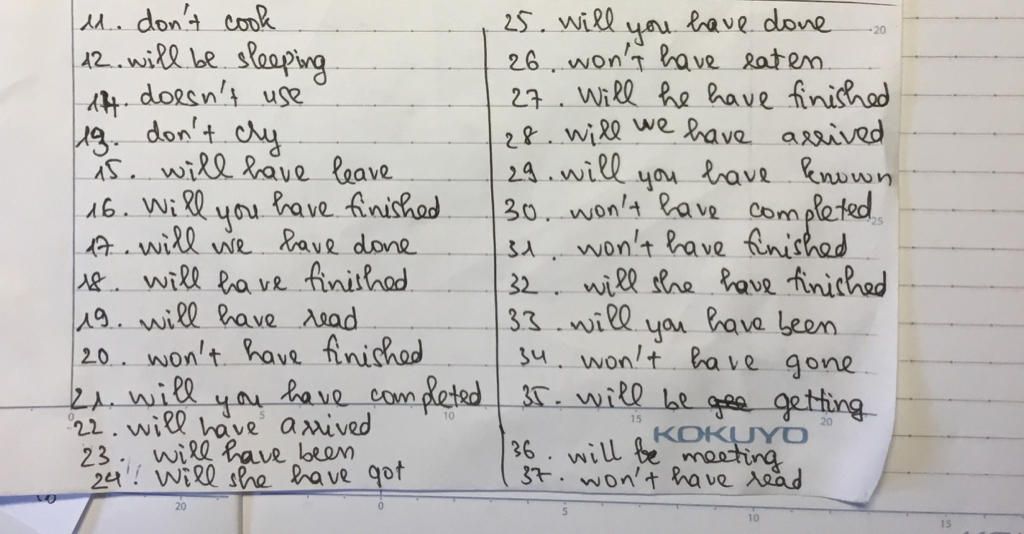 11. don't cook
12. will be sleeping
14. doesn't use
13. don't cry
15. will have leave
16. Will you have finished
17. will we have done
18. will have finished
19. will have read
20. won't have finished
21. will you have completed
22. will have arrived
23. will have been
24. Will she have got
25. will you have done
26. won't have eaten
27. Will he have finished
28. will we have arrived
29. will you have known
30. won't have completed
31. won't have finished
32. will she have finished
33. will you have been
34. won't have gone
35. will be getting
36. will be meeting
37. won't have read
KOKUYO
20
25
0 5 10 15 20
20 0 5 10 15